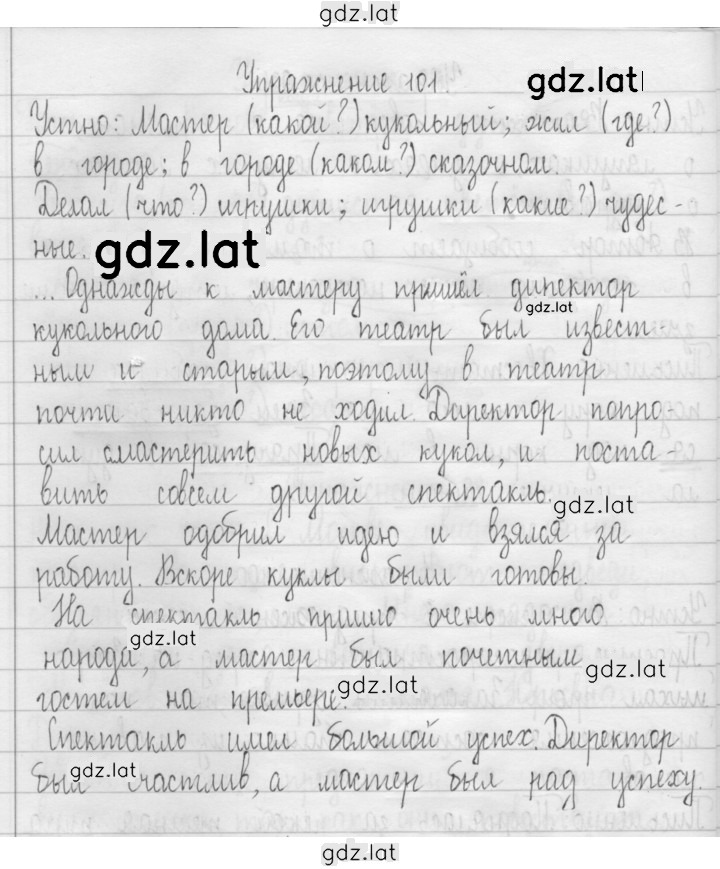 gdz.lat
Упражнение 101.
gdz.lat
Устно: Мастер (какой?) кукольный; жил (где?)
в городе; в городе (каком?) сказочном.
Делал (что?) игрушки; игрушки (какие?) чудес-
ные.
gdz.lat
... Однажды к мастеру пришёл дипектор
gdz.lat
кукольного дома. Его театр был извест-
ным и старым, поэтому в театр
почти никто не ходил. Директор попро-
сил смастерить новых кукол, и поста-
вить совсем другой спектакль.
gdz.lat
Мастер одобрил идею и взялся за
работу. Вскоре куклы были готовы.
На спектакль пришло очень много
gdz.lat
народа, а мастер был почетным
gdz.lat
гостем на премьере.
gdz.lat
Спектакль имел большой успех. Директор
gdz.lat
был счастлив, а мастер был рад успеху.
gdz.lat